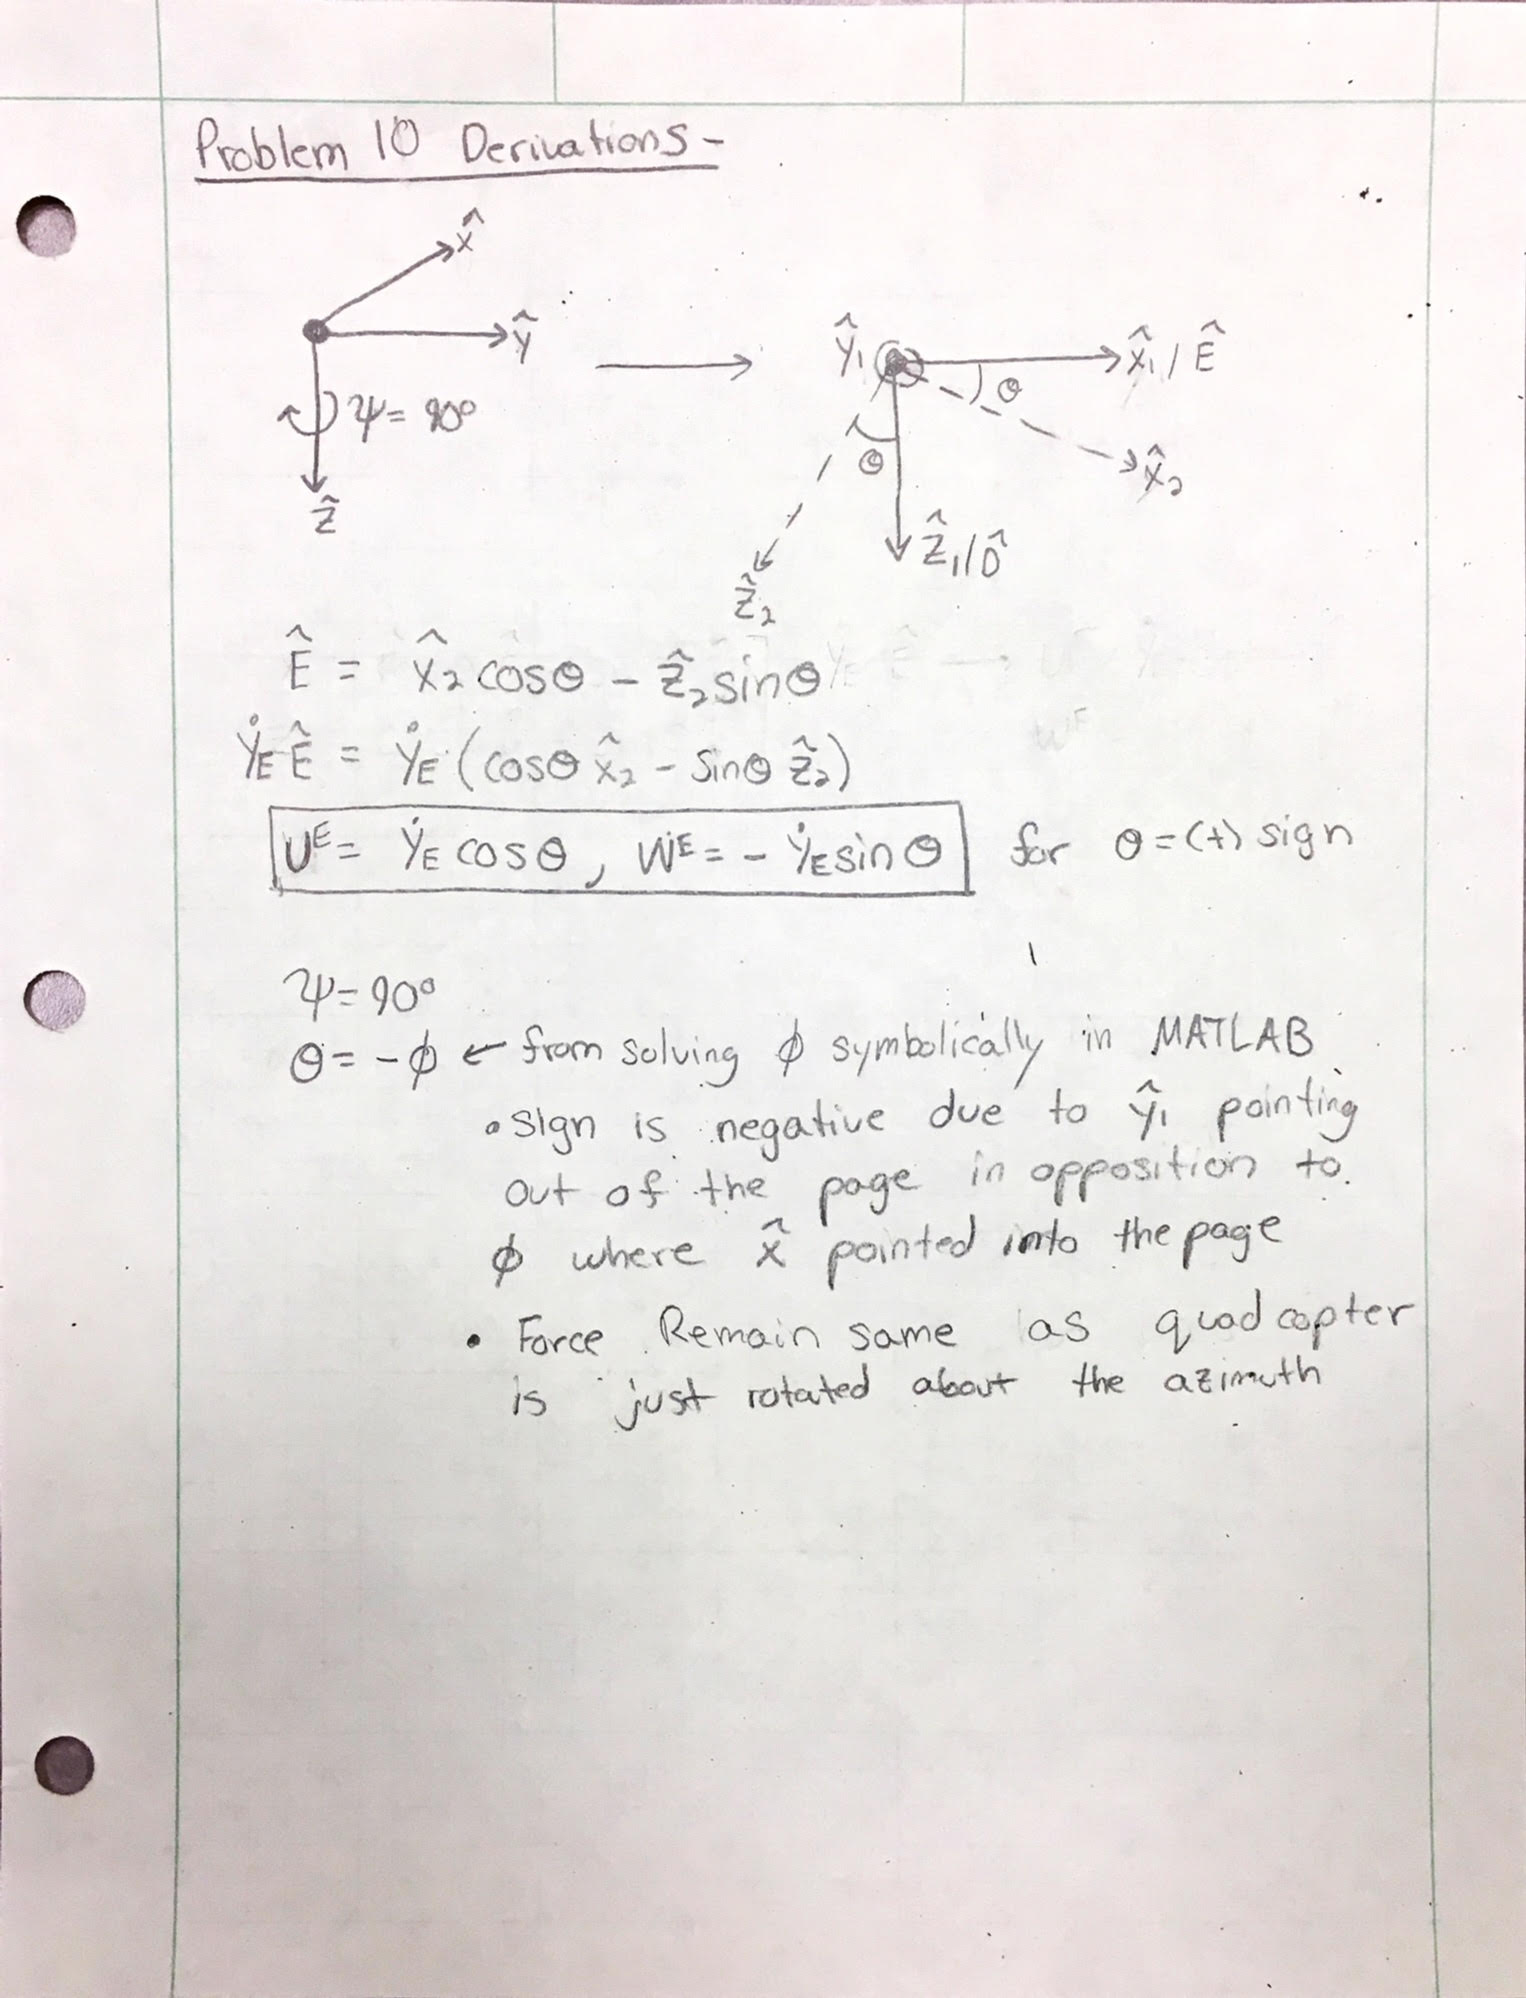 Problem 10 Derivations -
x̂
ŷ
ψ = 90°
ẑ
ŷ₁
x̂₁ / Ê
θ
x̂₂
θ
ẑ₁/D̂
ẑ₂
Ê = x̂₂ cosθ - ẑ₂ sinθ
ẏ_E Ê = ẏ_E (cosθ x̂₂ - sinθ ẑ₂)
U^E = ẏ_E cosθ, W^E = - ẏ_E sinθ for θ = (+) sign
ψ = 90°
θ = -ϕ ← from solving ϕ symbolically in MATLAB
• sign is negative due to ŷ₁ pointing
out of the page in opposition to
ϕ where x̂ pointed into the page
• Force Remain same as quadcopter
is just rotated about the azimuth